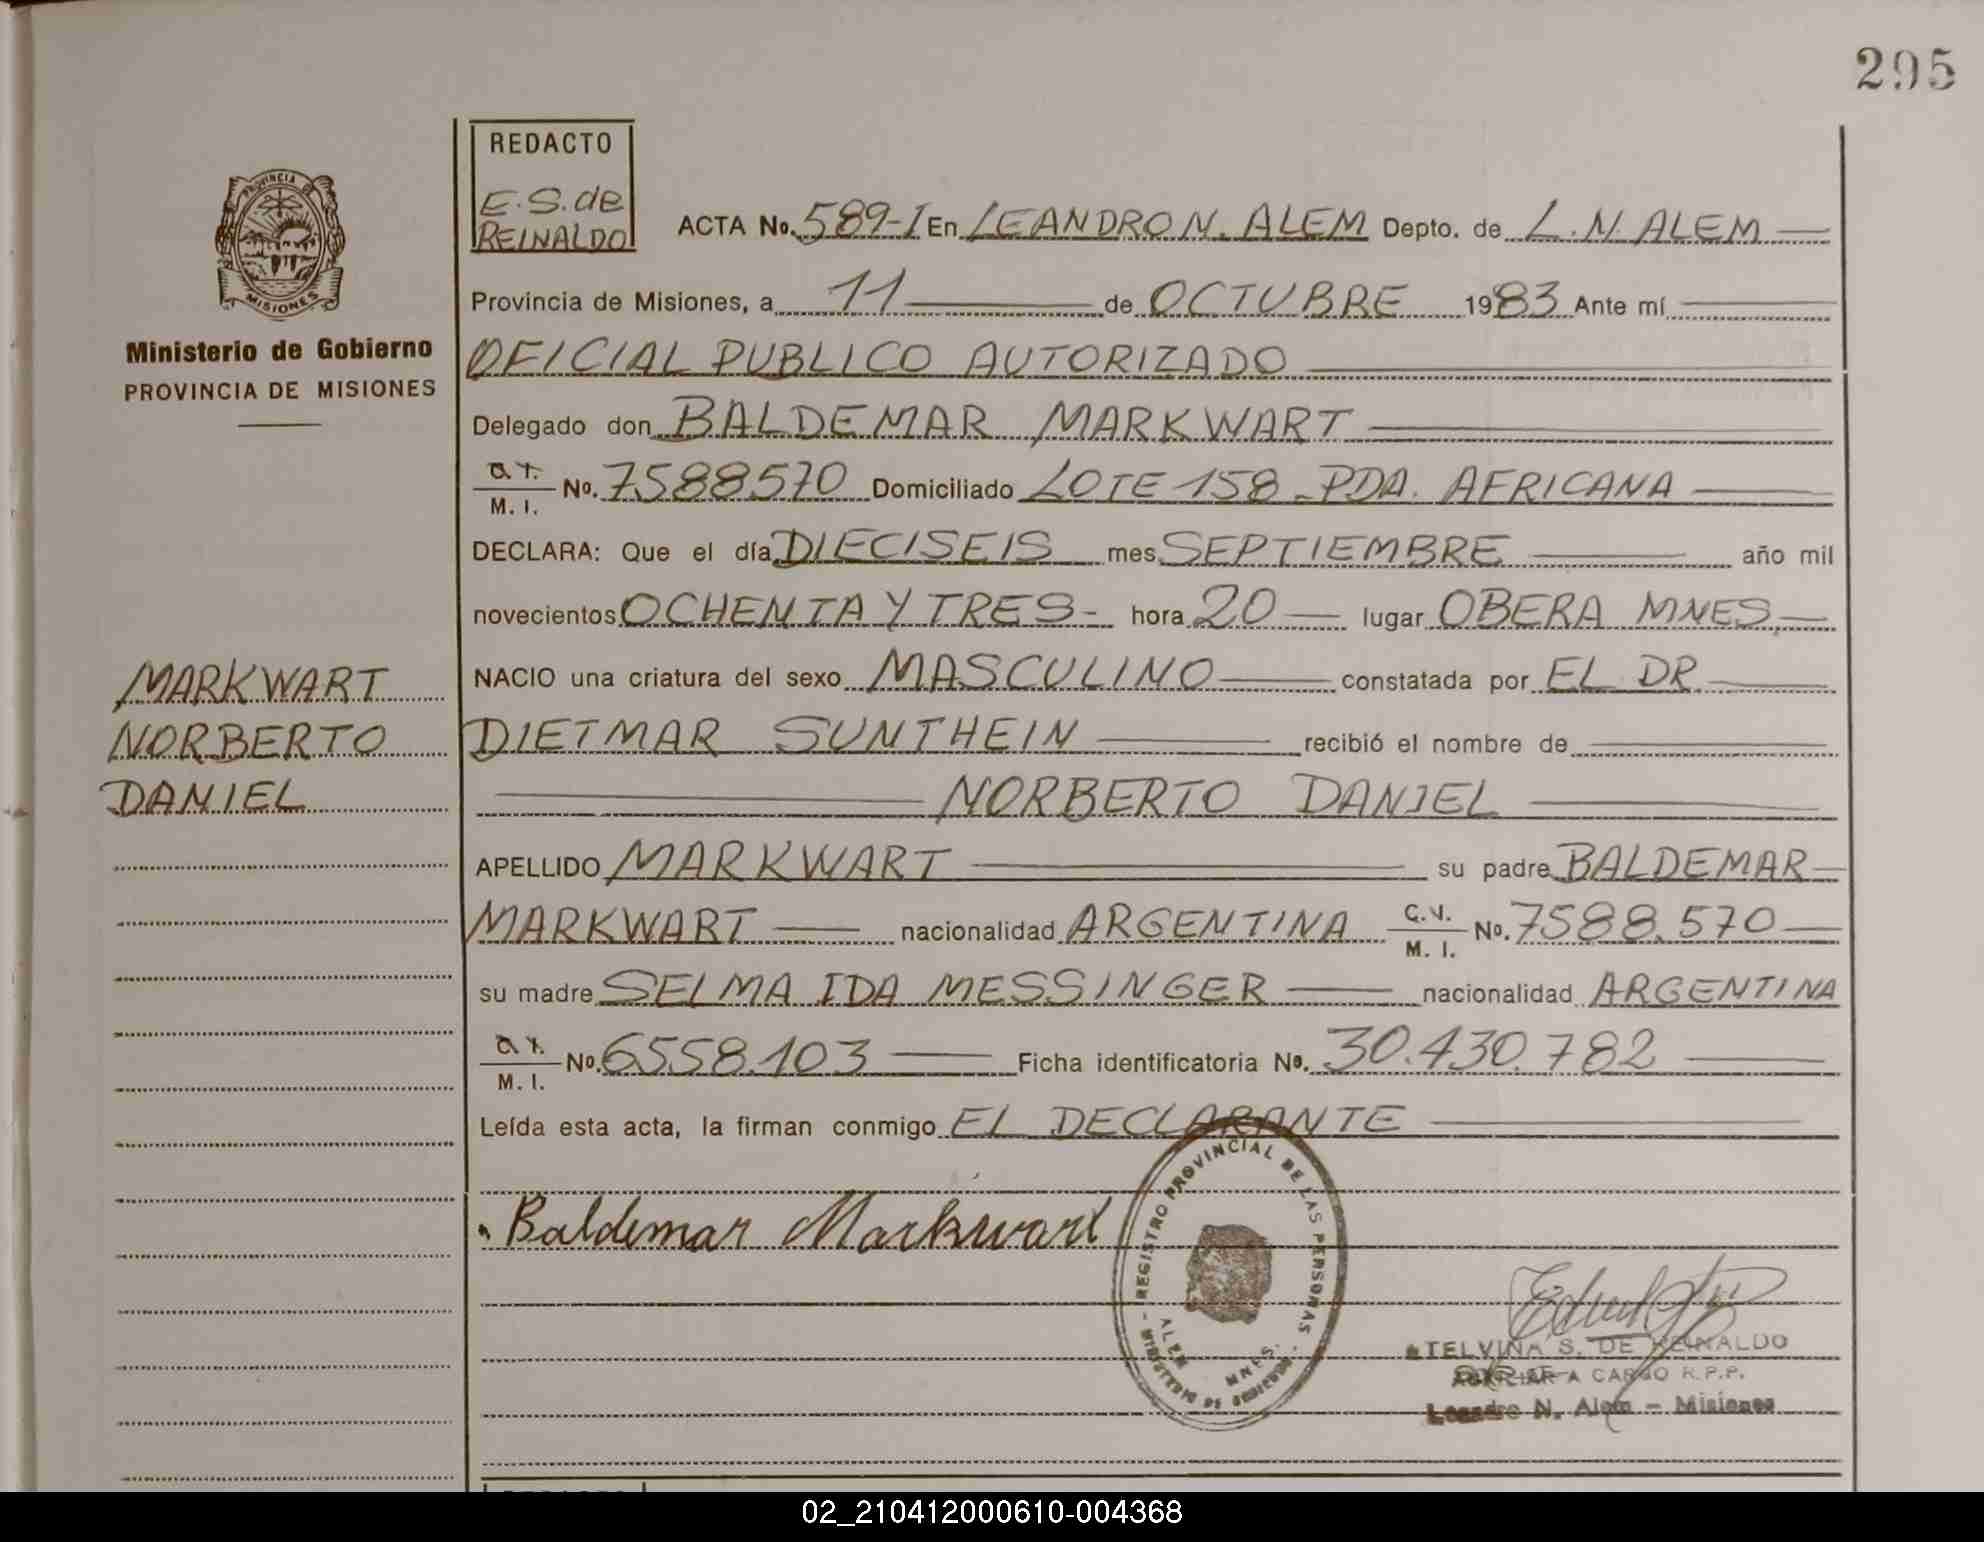 295
REDACTO
E.S. de
REINALDO
ACTA No. 589-I En LEANDRO N. ALEM Depto. de L. N. ALEM
PROVINCIA DE
MISIONES
Ministerio de Gobierno
PROVINCIA DE MISIONES
Provincia de Misiones, a 11 de OCTUBRE 1983 Ante mí
OFICIAL PUBLICO AUTORIZADO
Delegado don BALDEMAR MARKWART
M. I. No. 7588570 Domiciliado LOTE 158 - PDA. AFRICANA
DECLARA: Que el día DIECISEIS mes SEPTIEMBRE año mil
novecientos OCHENTA Y TRES - hora 20 lugar OBERA MNES.
NACIO una criatura del sexo MASCULINO constatada por EL DR.
DIETMAR SUNTHEIN recibió el nombre de
NORBERTO DANIEL
MARKWART
NORBERTO
DANIEL
APELLIDO MARKWART su padre BALDEMAR
MARKWART nacionalidad ARGENTINA M. I. No. 7588.570
su madre SELMA IDA MESSINGER nacionalidad ARGENTINA
M. I. No. 6558.103 Ficha identificatoria No. 30.430.782
Leída esta acta, la firman conmigo EL DECLARANTE
Baldemar Markwart
REGISTRO PROVINCIAL DE LAS PERSONAS
ALEM MNES.
MINISTERIO DE GOBIERNO
TELVINA S. DE REINALDO
AUXILIAR A CARGO R.P.P.
Leandro N. Alem - Misiones
02_210412000610-004368